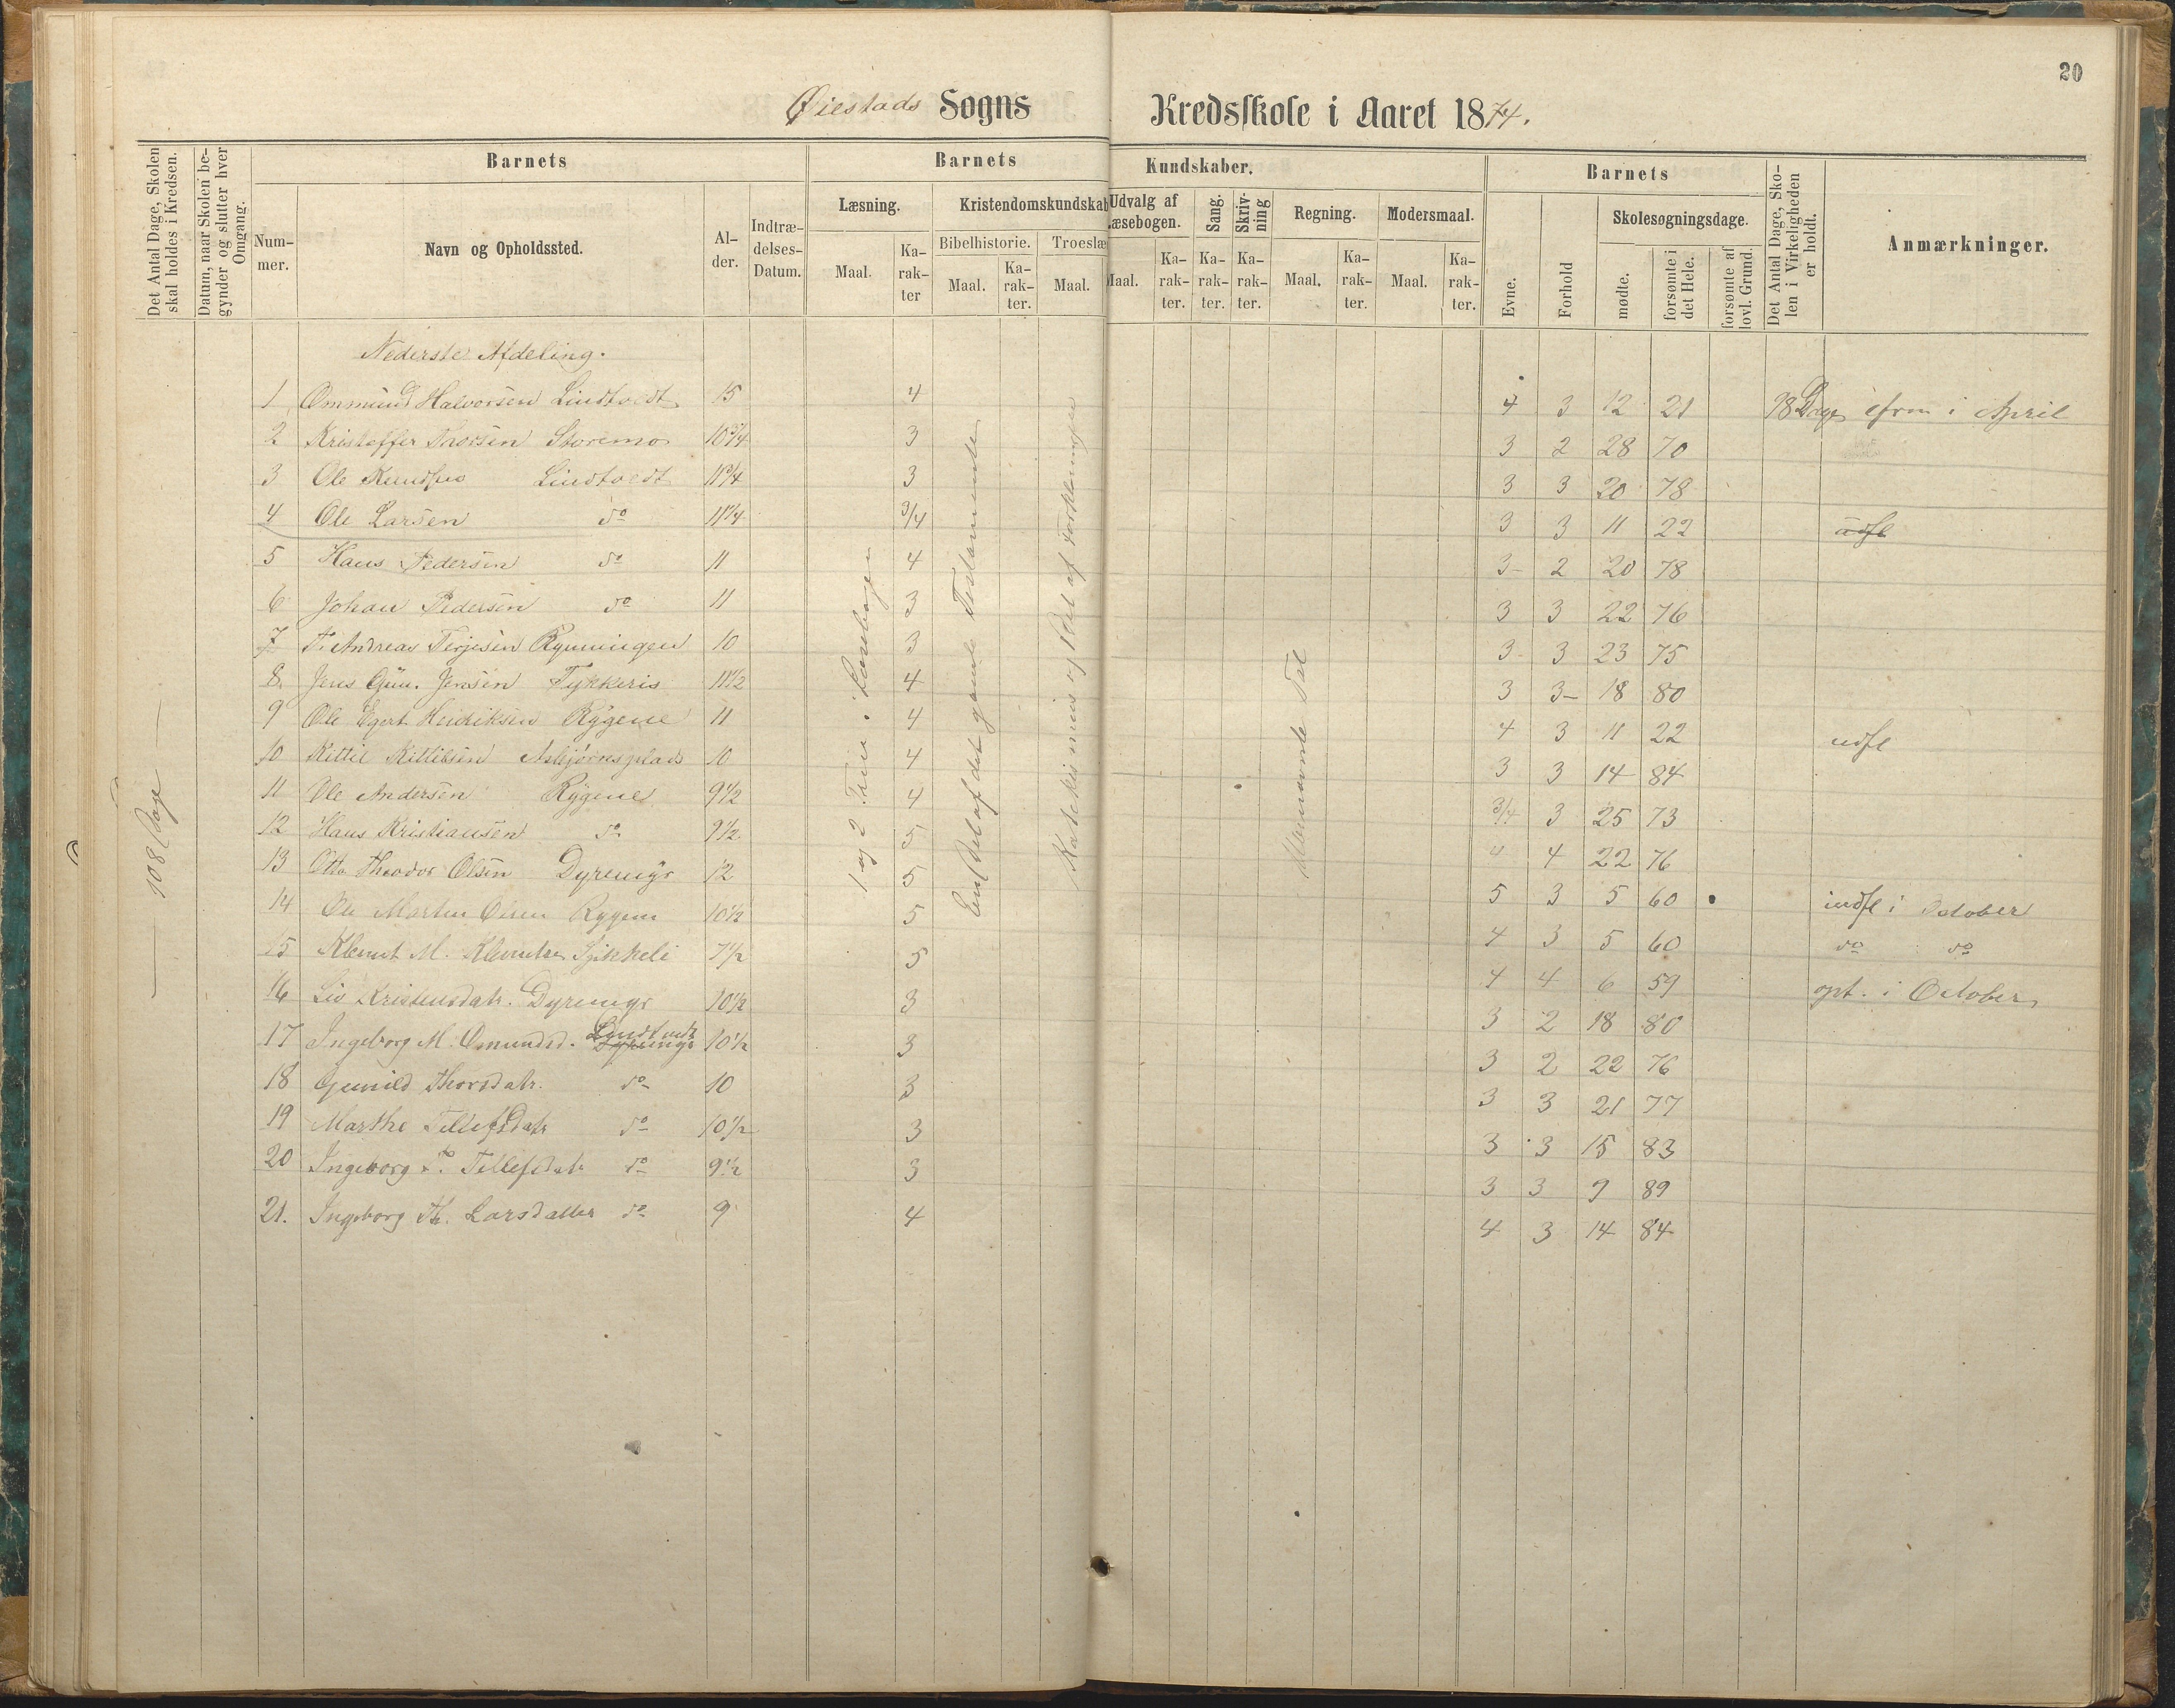 20
Øiestads Sogns Kredsskole i Aaret 1874.
Det Antal Dage, Skolen skal holdes i Kredsen.
Datum, naar Skolen begynder og slutter hver Omgang.
Barnets
Nummer.
Navn og Opholdssted.
Alder.
Indtrædelses-Datum.
Barnets Kundskaber.
Læsning.
Maal.
Karakter
Kristendomskundskab
Bibelhistorie.
Maal.
Karakter.
Troeslæ
Maal.
Udvalg af Læsebogen.
Maal.
Karakter.
Sang.
Karakter.
Skrivning
Karakter.
Regning.
Maal.
Karakter.
Modersmaal.
Maal.
Karakter.
Barnets
Evne.
Forhold
Skolesøgningsdage.
mødte.
forsømte i det Hele.
forsømte af lovl. Grund.
Det Antal Dage, Skolen i Virkeligheden er holdt.
Anmærkninger.
108 Dage
1 og 2 Trin i Læsebogen
En Del af det gamle Testamente
Katekismus og Del af Forklaringen
Ubenævnte Tal
Nederste Afdeling.
1 Ommund Halvorsen Lindtvedt 15 4 4 3 12 21 98 Dage i April
2 Kristoffer Thorsen Storemo 10 3/4 3 3 2 28 70
3 Ole Knudsen Lindtvedt 11 3/4 3 3 3 20 78
4 Ole Larsen do 11 3/4 3/4 3 3 11 22 udfl
5 Hans Pedersen do 11 4 3- 2 20 78
6 Johan Pedersen do 11 3 3 3 22 76
7 T. Andreas Terjesen Rynningen 10 3 3- 3 23 75
8 Jens Gun. Jensen Tykkeris 11 1/2 4 3 3- 18 80
9 Ole Egert Hendriksen Rygene 11 4 4 3 11 22 udfl
10 Kittil Kittilsen Asbjørnsplads 10 4 3 3 14 84
11 Ole Andersen Rygene 9 1/2 4 3/4 3 25 73
12 Hans Kristiansen do 9 1/2 5 4 4 22 76
13 Otto Theodor Olsen Dyremyr 12 5 5 3 5 60 indfl i October
14 Ole Martin Olsen Rygene 10 1/2 5 4 3 5 60 do do
15 Klemet M. Klemetsen 7 1/2 5 4 4 6 59 opt. i October
16 Liv Kristensdatr. Dyremyr 10 1/2 3 3 2 18 80
17 Ingeborg M. Omundsd. Dyremyr Lindtvedt 10 1/2 3 3 2 22 76
18 Gunild Thorsdatr. do 10 3 3 3 21 77
19 Marthe Tellefsdatr do 10 1/2 3 3 3 15 83
20 Ingeborg T. Tellefsdatr do 9 1/2 3 3 3 9 89
21. Ingeborg Th. Larsdatter do 9 4 4 3 14 84